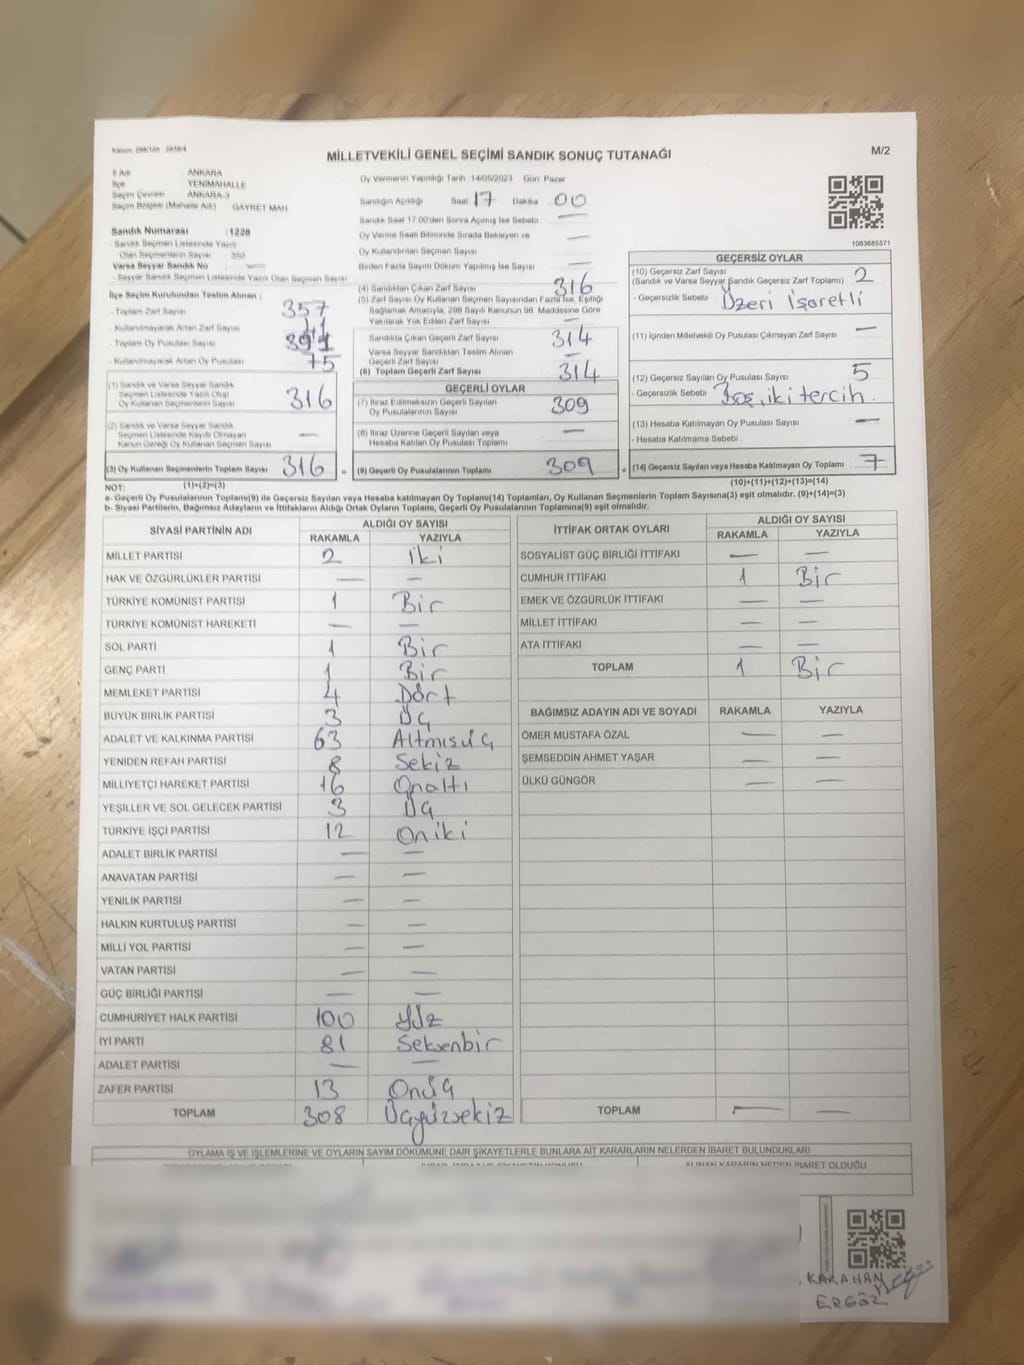 MİLLETVEKİLİ GENEL SEÇİMİ SANDIK SONUÇ TUTANAĞI
M/2
İl Adı ANKARA
İlçe YENİMAHALLE
Seçim Çevresi ANKARA-3
Seçim Bölgesi (Mahalle Adı) GAYRET MAH
Sandık Numarası :1228
- Sandık Seçmen Listesinde Yazılı
Olan Seçmenlerin Sayısı : 350
Varsa Seyyar Sandık No : —
- Seyyar Sandık Seçmen Listesinde Yazılı Olan Seçmen Sayısı
İlçe Seçim Kurulundan Teslim Alınan :
- Toplam Zarf Sayısı 357
- Kullanılmayarak Artan Zarf Sayısı
- Toplam Oy Pusulası Sayısı
- Kullanılmayarak Artan Oy Pusulası 75
(1) Sandık ve Varsa Seyyar Sandık
Seçmen Listesinde Yazılı Olup
Oy Kullanan Seçmenlerin Sayısı 316
(2) Sandık ve Varsa Seyyar Sandık
Seçmen Listesinde Kayıtlı Olmayan
Kanun Gereği Oy Kullanan Seçmen Sayısı —
(3) Oy Kullanan Seçmenlerin Toplam Sayısı 316 =
(1)+(2)=(3)
Oy Vermenin Yapıldığı Tarih 14/05/2023 Gün Pazar
Sandığın Açıldığı Saat 17 Dakika 00
Sandık Saat 17.00'den Sonra Açılmış İse Sebebi —
Oy Verme Saati Bitiminde Sırada Bekleyen ve
Oy Kullandırılan Seçmen Sayısı —
Birden Fazla Sayım Döküm Yapılmış İse Sayısı —
(4) Sandıktan Çıkan Zarf Sayısı 316
(5) Zarf Sayısı Oy Kullanan Seçmen Sayısından Fazla İse, Eşitliği
Sağlamak Amacıyla, 298 Sayılı Kanunun 98. Maddesine Göre
Yakılarak Yok Edilen Zarf Sayısı —
Sandıkta Çıkan Geçerli Zarf Sayısı 314
Varsa Seyyar Sandıktan Teslim Alınan
Geçerli Zarf Sayısı —
(6) Toplam Geçerli Zarf Sayısı 314
GEÇERLİ OYLAR
(7) İtiraz Edilmeksizin Geçerli Sayılan
Oy Pusulalarının Sayısı 309
(8) İtiraz Üzerine Geçerli Sayılan veya
Hesaba Katılan Oy Pusulası Toplamı —
(9) Geçerli Oy Pusulalarının Toplamı 309 +
1083685571
GEÇERSİZ OYLAR
(10) Geçersiz Zarf Sayısı
(Sandık ve Varsa Seyyar Sandık Geçersiz Zarf Toplamı) 2
- Geçersizlik Sebebi : Üzeri İşaretli
(11) İçinden Milletvekili Oy Pusulası Çıkmayan Zarf Sayısı —
(12) Geçersiz Sayılan Oy Pusulası Sayısı 5
- Geçersizlik Sebebi : Boş, iki tercih.
(13) Hesaba Katılmayan Oy Pusulası Sayısı —
- Hesaba Katılmama Sebebi :
(14) Geçersiz Sayılan veya Hesaba Katılmayan Oy Toplamı : 7
(10)+(11)+(12)+(13)=(14)
NOT:
a- Geçerli Oy Pusulalarının Toplamı(9) ile Geçersiz Sayılan veya Hesaba katılmayan Oy Toplamı(14) Toplamları, Oy Kullanan Seçmenlerin Toplam Sayısına(3) eşit olmalıdır. (9)+(14)=(3)
b- Siyasi Partilerin, Bağımsız Adayların ve İttifakların Aldığı Ortak Oyların Toplamı, Geçerli Oy Pusulalarının Toplamına(9) eşit olmalıdır.
SİYASİ PARTİNİN ADI ALDIĞI OY SAYISI
RAKAMLA YAZIYLA
MİLLET PARTİSİ 2 İki
HAK VE ÖZGÜRLÜKLER PARTİSİ — —
TÜRKİYE KOMÜNİST PARTİSİ 1 Bir
TÜRKİYE KOMÜNİST HAREKETİ — —
SOL PARTİ 1 Bir
GENÇ PARTİ 1 Bir
MEMLEKET PARTİSİ 4 Dört
BÜYÜK BİRLİK PARTİSİ 3 Üç
ADALET VE KALKINMA PARTİSİ 63 Altmışüç
YENİDEN REFAH PARTİSİ 8 Sekiz
MİLLİYETÇİ HAREKET PARTİSİ 16 Onaltı
YEŞİLLER VE SOL GELECEK PARTİSİ 3 Üç
TÜRKİYE İŞÇİ PARTİSİ 12 Oniki
ADALET BİRLİK PARTİSİ — —
ANAVATAN PARTİSİ — —
YENİLİK PARTİSİ — —
HALKIN KURTULUŞ PARTİSİ — —
MİLLİ YOL PARTİSİ — —
VATAN PARTİSİ — —
GÜÇ BİRLİĞİ PARTİSİ — —
CUMHURİYET HALK PARTİSİ 100 Yüz
İYİ PARTİ 81 Seksenbir
ADALET PARTİSİ — —
ZAFER PARTİSİ 13 Onüç
TOPLAM 308 Üçyüzsekiz
İTTİFAK ORTAK OYLARI ALDIĞI OY SAYISI
RAKAMLA YAZIYLA
SOSYALİST GÜÇ BİRLİĞİ İTTİFAKI — —
CUMHUR İTTİFAKI 1 Bir
EMEK VE ÖZGÜRLÜK İTTİFAKI — —
MİLLET İTTİFAKI — —
ATA İTTİFAKI — —
TOPLAM 1 Bir
BAĞIMSIZ ADAYIN ADI VE SOYADI RAKAMLA YAZIYLA
ÖMER MUSTAFA ÖZAL — —
ŞEMSEDDİN AHMET YAŞAR — —
ÜLKÜ GÜNGÖR — —
TOPLAM — —
OYLAMA İŞ VE İŞLEMLERİNE VE OYLARIN SAYIM DÖKÜMÜNE DAİR ŞİKAYETLERLE BUNLARA AİT KARARLARIN NELERDEN İBARET BULUNDUKLARI
ALINAN KARARIN NEDEN İBARET OLDUĞU
KARAHAN
ERGÖZ